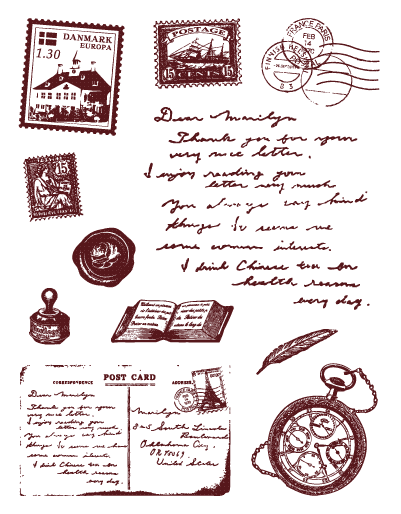 DANMARK
EUROPA
1.30
POSTAGE
15 CENTS 15
FRANCE PARIS
FEB
14
15
Dear Marilyn
Thank you for your
very nice letter.
I enjoy reading your
letter very much
You always say kind
things
some common interests.
I drink Chinese tea for
health reasons
every day.
POST CARD
CORRESPONDENCE
ADDRESS
Dear Marilyn
Thank you for your
very nice letter.
I enjoy reading your
letter very much
You always say kind
things
some common interests.
I drink Chinese tea for
health reasons
every day.
Marilyn
South Lincoln
Boulevard
Oklahoma City.
United States